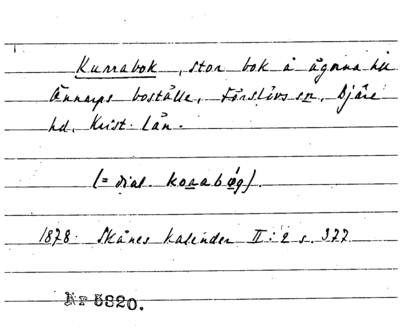 Kurrabok, stor bok å ägorna till
Ännarps boställe, Förslövs sn, Bjäre
hd, Krist. län.
(= dial. korabög).
1878. Skånes kalender II:2 s. 377
Nr 5820.